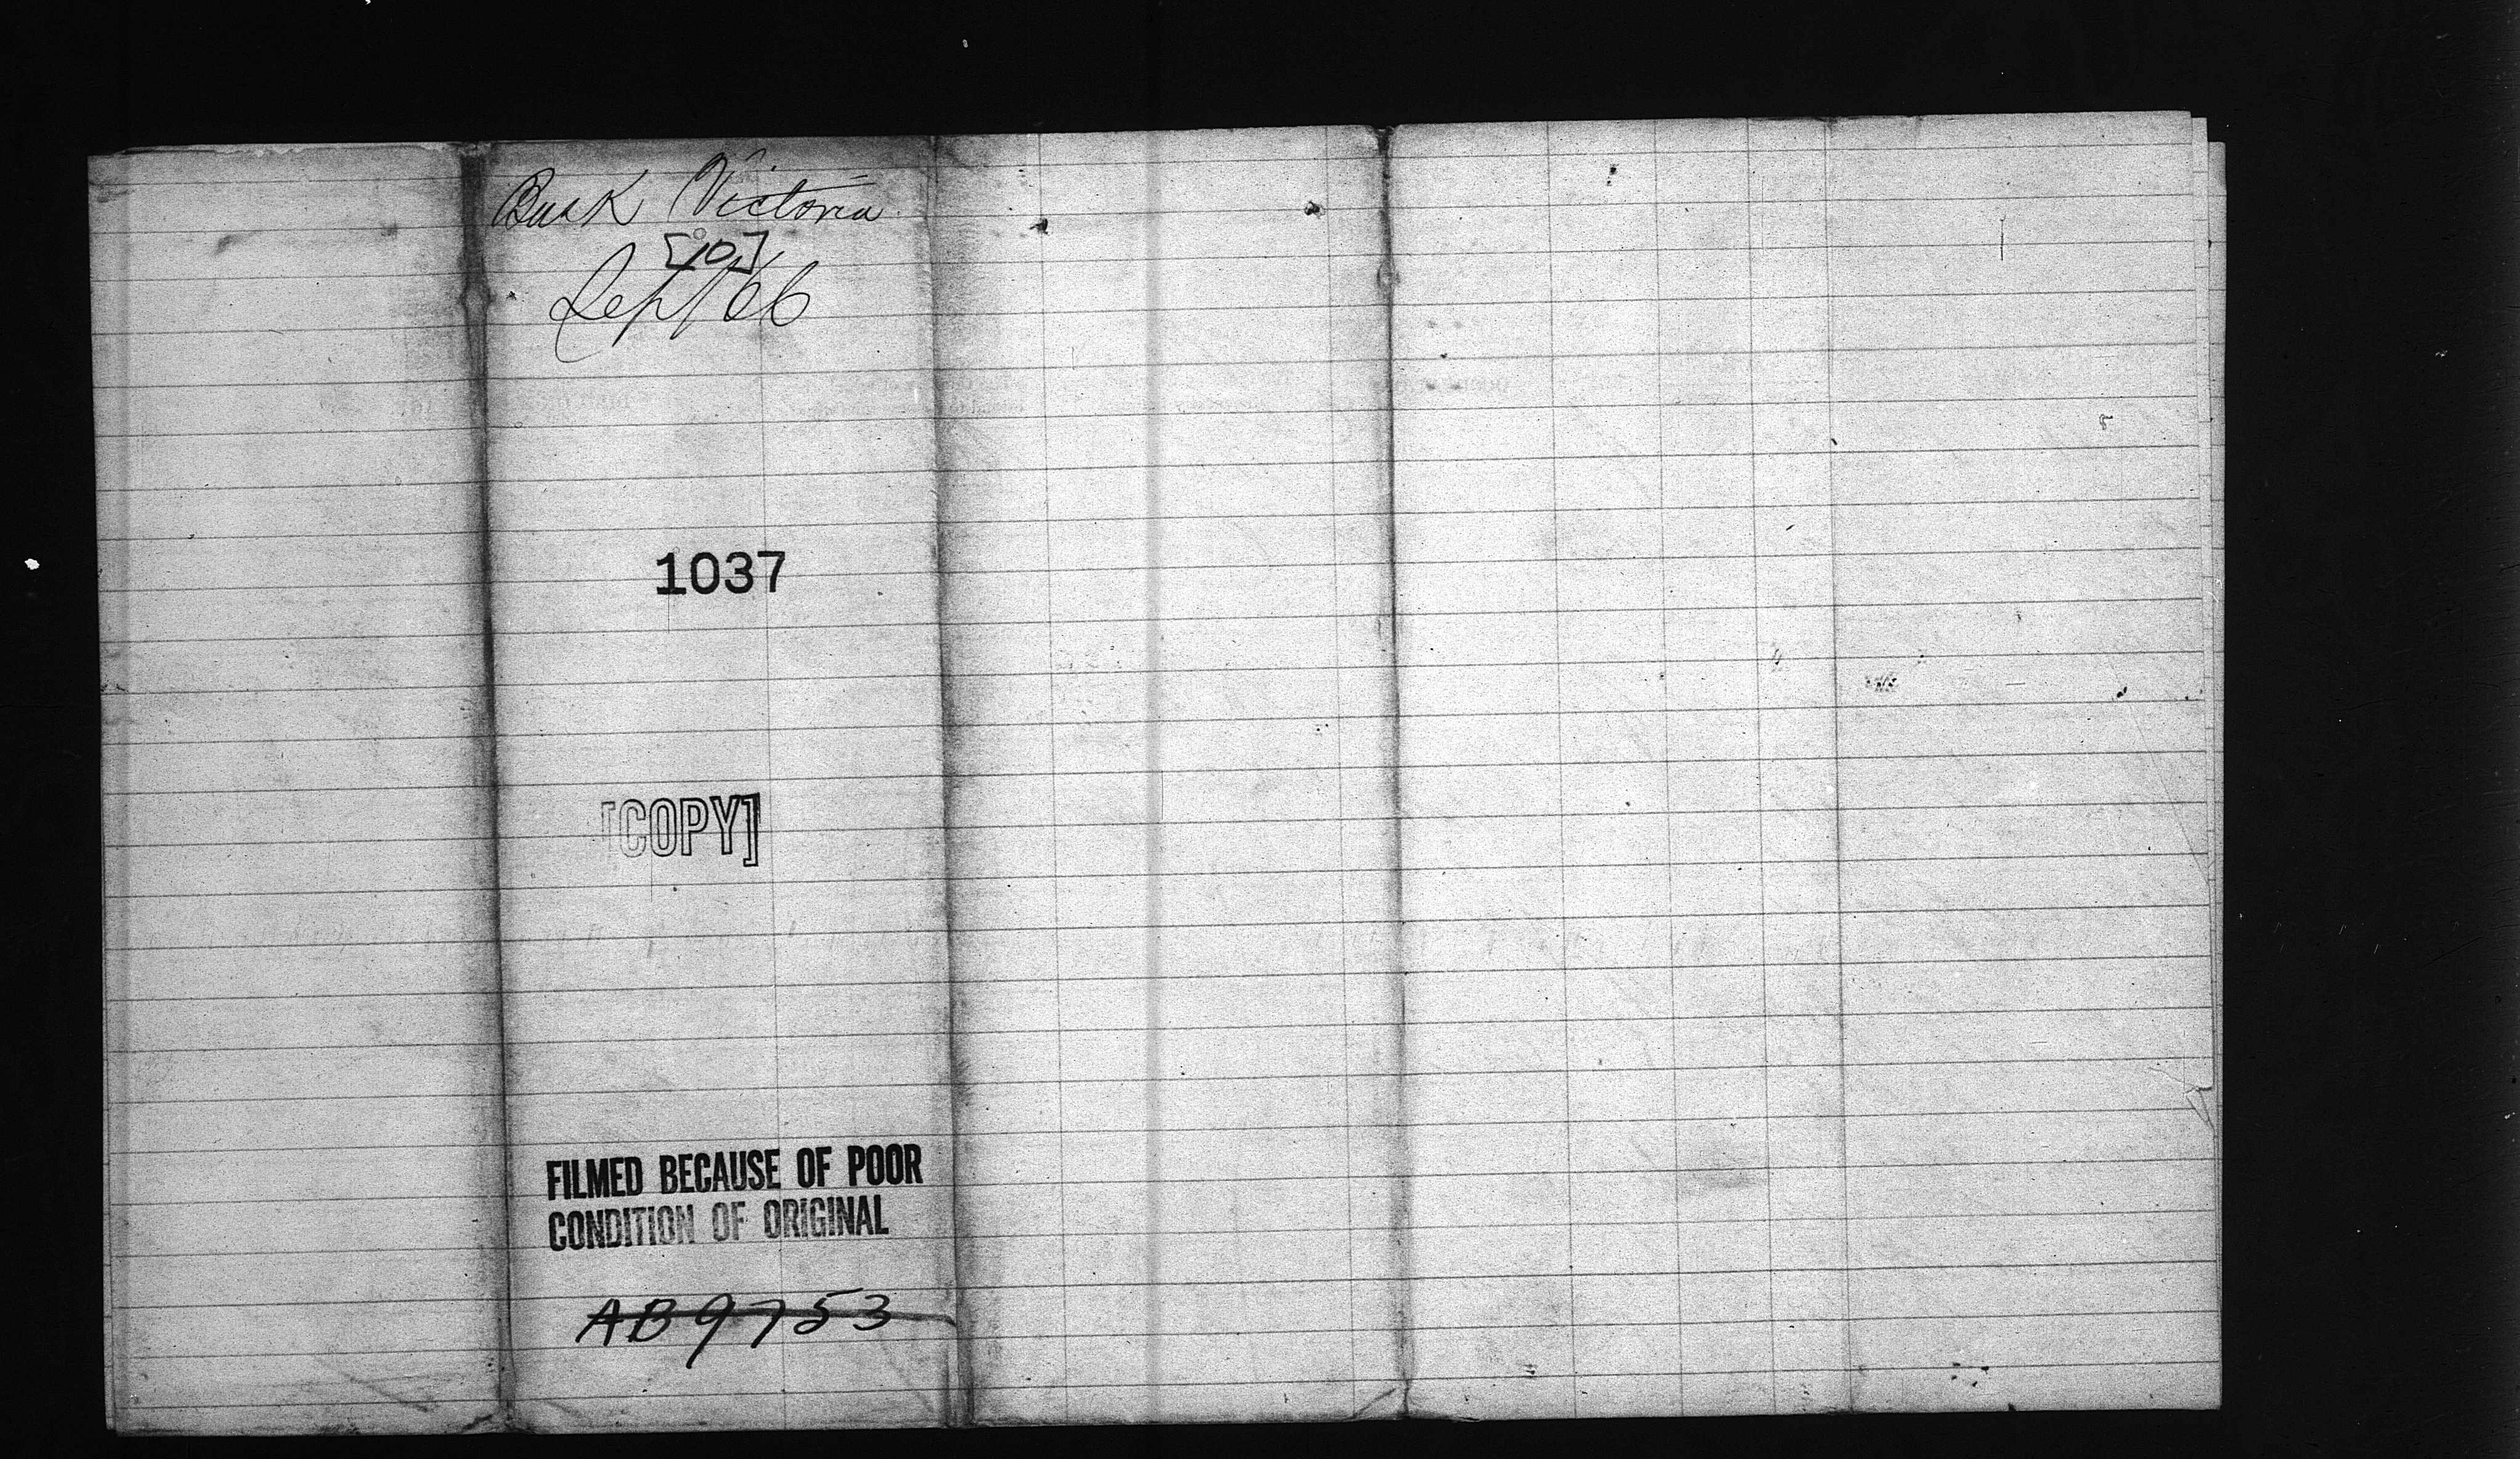 Bark Victoria
[10]
Sept/66
1037
[COPY]
FILMED BECAUSE OF POOR
CONDITION OF ORIGINAL
AB9753